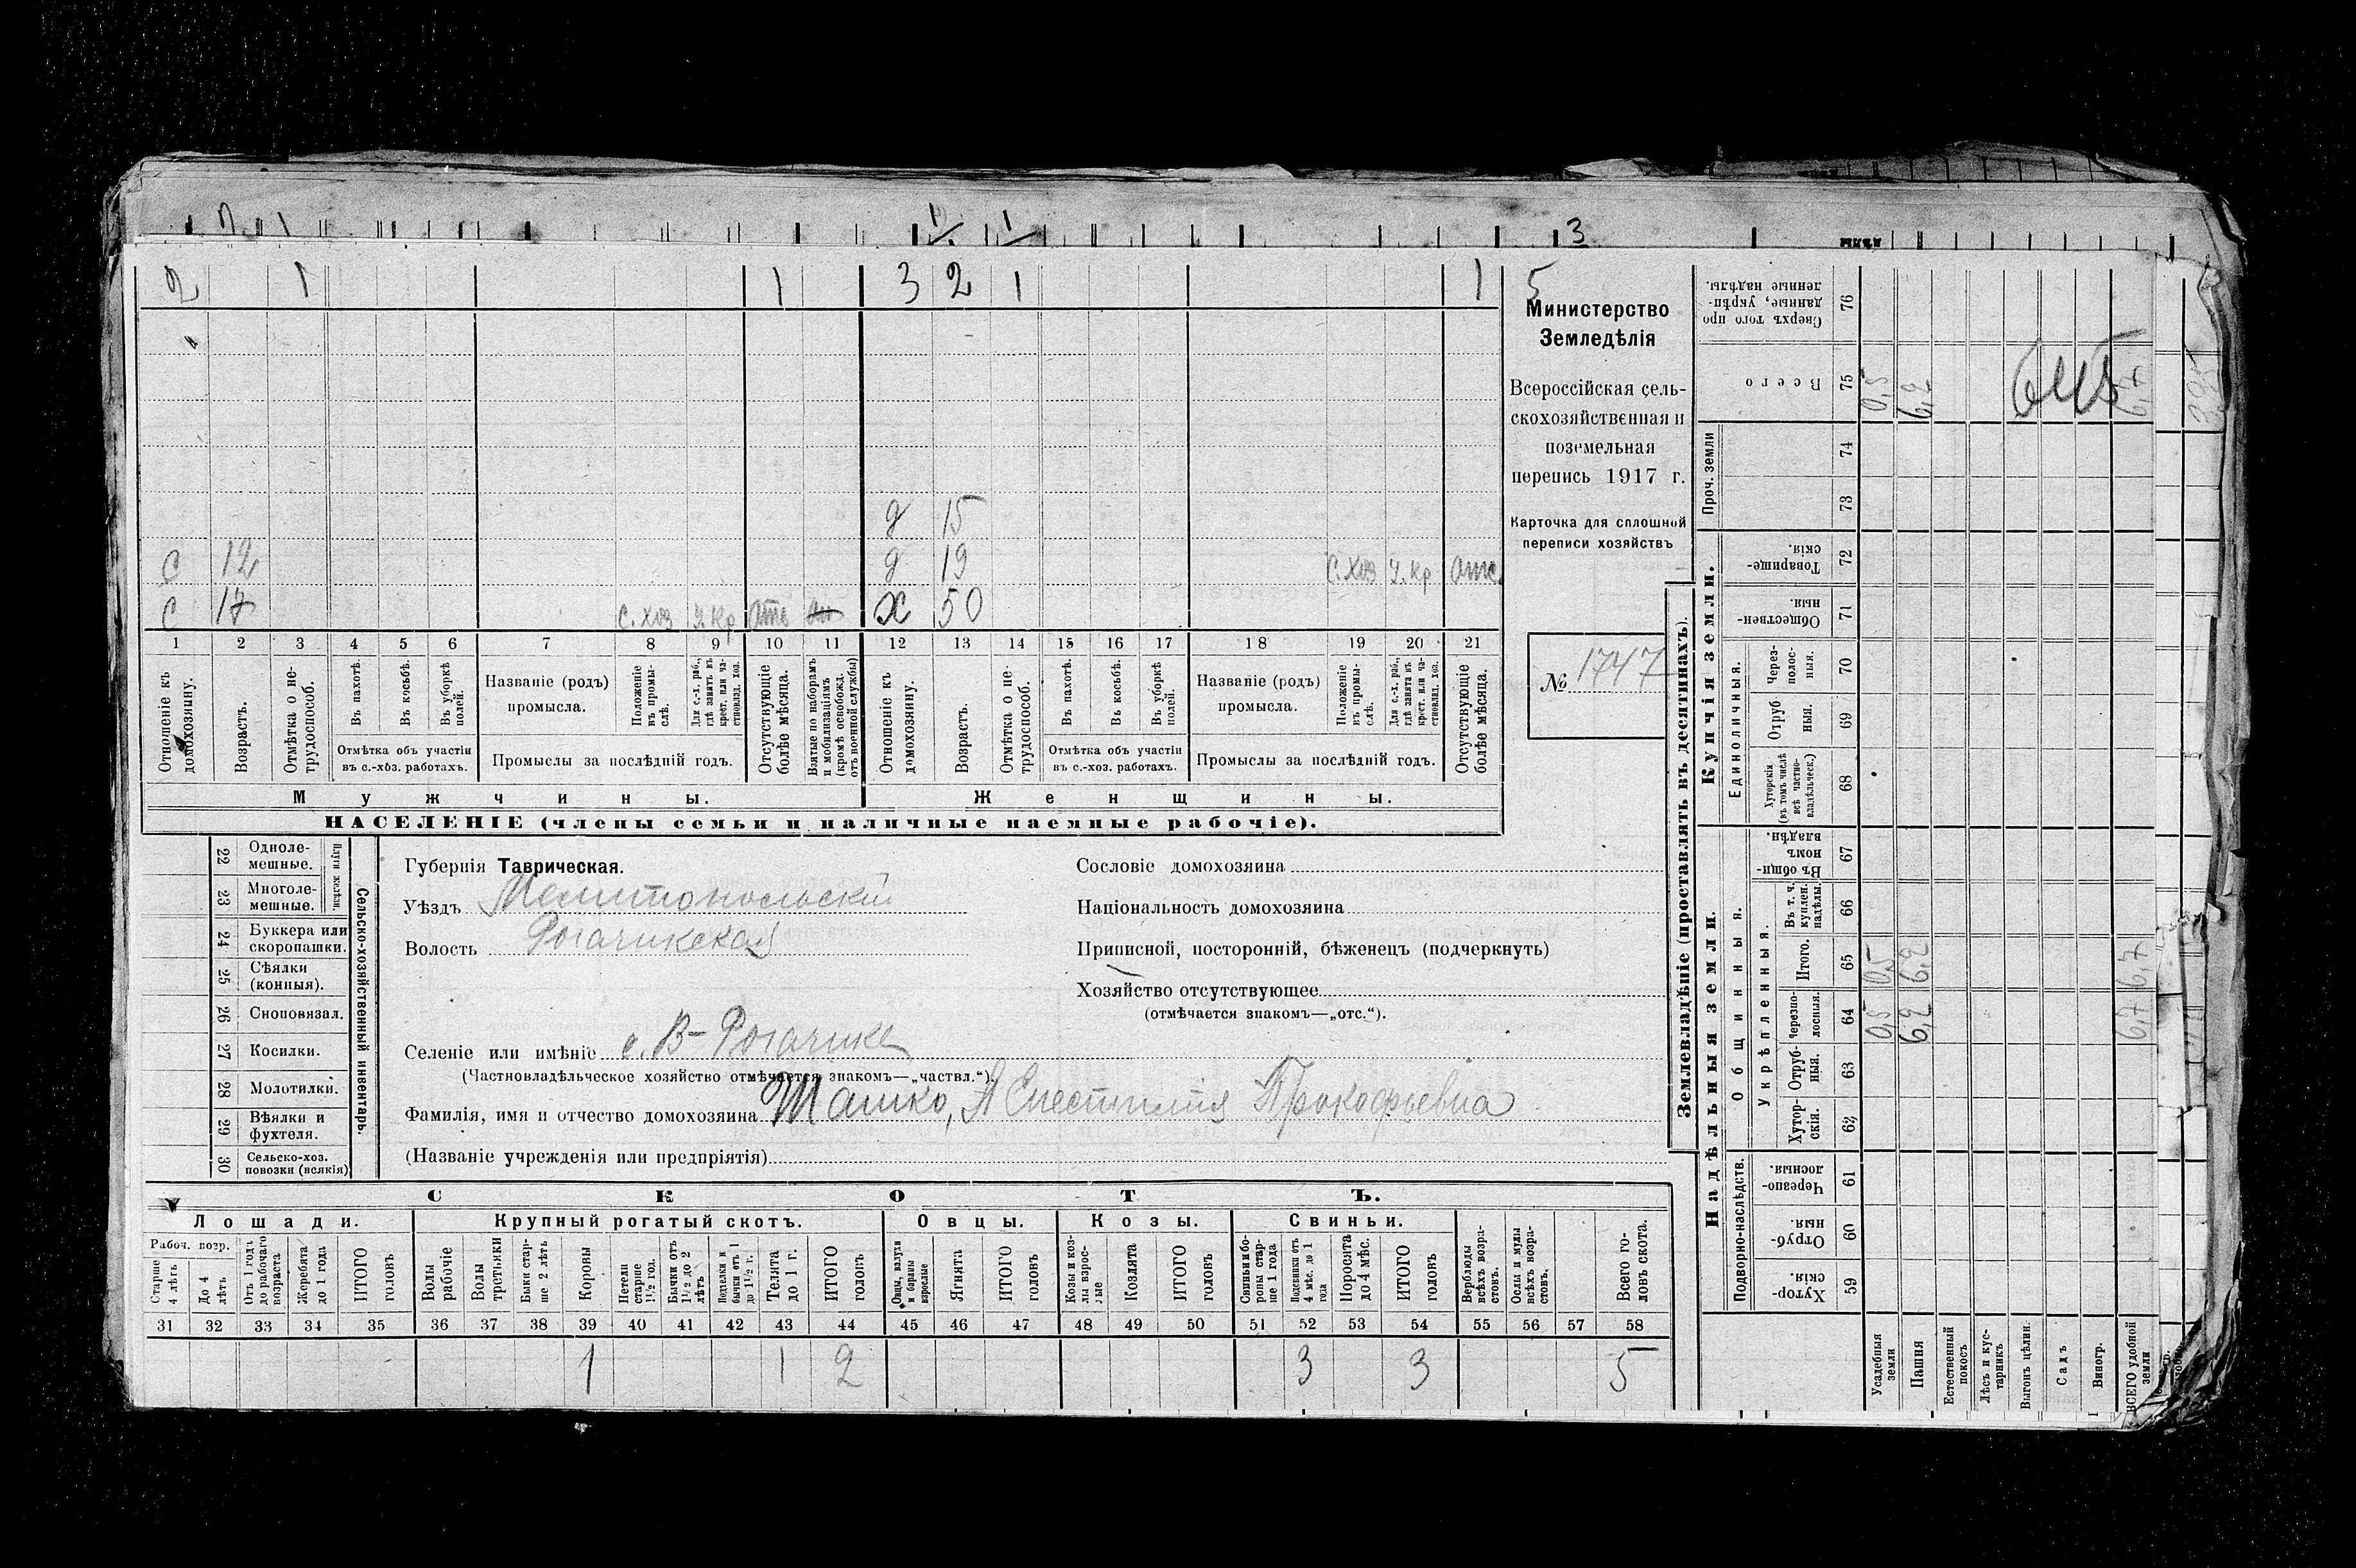 2 1 1 3 2 1 1 5
д 15
с 12 д 19 с.хоз у.кр отс.
с 17 с.хоз у.кр отс х 50
1 2 3 4 5 6 7 8 9 10 11 12 13 14 15 16 17 18 19 20 21
Отношеніе къ домохозяину.
Возрастъ.
Отмѣтка о не-трудоспособ.
Въ пахотѣ.
Въ косьбѣ.
Въ уборкѣ полей.
Отмѣтка объ участіи
въ с.-хоз. работахъ.
Названіе (родъ)
промысла.
Положеніе въ промы-слѣ.
Для с.-х. раб., гдѣ занятъ въ крест. или ча-стновлад. хоз.
Промыслы за послѣдній годъ.
Отсутствующіе болѣе мѣсяца.
Взятые по наборамъ и мобилизаціямъ (кромѣ освобожд. отъ военной службы)
Отношеніе къ домохозяину.
Возрастъ.
Отмѣтка о не-трудоспособ.
Въ пахотѣ.
Въ косьбѣ.
Въ уборкѣ полей.
Отмѣтка объ участіи
въ с.-хоз. работахъ.
Названіе (родъ)
промысла.
Положеніе въ промы-слѣ.
Для с.-х. раб., гдѣ занята въ крест. или ча-стновлад. хоз.
Промыслы за послѣдній годъ.
Отсутствующіе болѣе мѣсяца.
Мужчины. Женщины.
НАСЕЛЕНІЕ (члены семьи и наличные наемные рабочіе).
Министерство
Земледѣлія
Всероссійская сель-
скохозяйственная и
поземельная
перепись 1917 г.
Карточка для сплошной
переписи хозяйствъ
№ 1747
Сельско-хозяйственный инвентарь.
Плуги желѣзн.
22 Одноле-мешные.
23 Многоле-мешные.
24 Буккера или скоропашки.
25 Сѣялки (конныя).
26 Сноповязал.
27 Косилки.
28 Молотилки.
29 Вѣялки и фухтеля.
30 Сельско-хоз. повозки (всякія)
Губернія Таврическая.
Уѣздъ Мелитопольскій
Волость Рогачикская
Селеніе или имѣніе с. В-Рогачике
(Частновладѣльческое хозяйство отмѣчается знакомъ—„частвл.“).
Фамилія, имя и отчество домохозяина Прокофьевна
(Названіе учрежденія или предпріятія)
Сословіе домохозяина
Національность домохозяина
Приписной, посторонній, бѣженецъ (подчеркнуть)
Хозяйство отсутствующее
(отмѣчается знакомъ—„отс.“).
СКОТЪ.
Лошади. Крупный рогатый скотъ. Овцы. Козы. Свиньи.
Рабоч. возр.
Старше 4 лѣтъ
До 4 лѣтъ
Отъ 1 года до рабочаго возраста
Жеребята до 1 года
ИТОГО головъ
Волы рабочіе
Волы третьяки
Быки стар-ше 2 лѣтъ
Коровы
Нетели старше 1½ год.
Бычки отъ 1½ до 2 лѣтъ
Подтелки и бычки отъ 1 до 1½ г.
Телята до 1 г.
ИТОГО головъ
Овцы, валухи и бараны взрослые
Ягнята
ИТОГО головъ
Козы и коз-лы взрос-лые
Козлята
ИТОГО головъ
Свиньи и бо-ровы стар-ше 1 года
Подсвинки отъ 4 мѣс. до 1 года
Поросята до 4 мѣс.
ИТОГО головъ
Верблюды всѣхъ возра-стовъ.
Ослы и мулы всѣхъ возра-стовъ.
Всего го-ловъ скота.
31 32 33 34 35 36 37 38 39 40 41 42 43 44 45 46 47 48 49 50 51 52 53 54 55 56 57 58
1 1 2 3 3 5
Землевладѣніе (проставлять въ десятинахъ).
Надѣльныя земли. Купчія земли. Проч. земли
Подворно-наслѣдств. Общинныя. Единоличныя.
Укрѣпленныя.
59 Хутор-скія.
60 Отруб-ныя.
61 Черезпо-лосныя.
62 Хутор-скія.
63 Отруб-ныя.
64 Черезпо-лосныя. 0,5 6,2 6,7
65 Итого. 0,5 6,2 6,7
66 Въ т. ч. куплен. надѣлы.
67 Въ общи-номъ владѣн.
68 Хуторскія (въ томъ числѣ всѣ частно-владѣльческ.)
69 Отруб ныя.
70 Через-полос-ныя.
71 Обществен-ныя.
72 Товарище-скія.
73
74
75 Всего 0,5 6,2 6,7
76 Сверхъ того про данные, укрѣп-ленные надѣлы.
Усадебныя земли
Пашня
Естественный покосъ
Лѣсъ и кус-тарникъ
Выгонъ цѣлин.
Садъ
Виногр.
ВСЕГО удобной земли